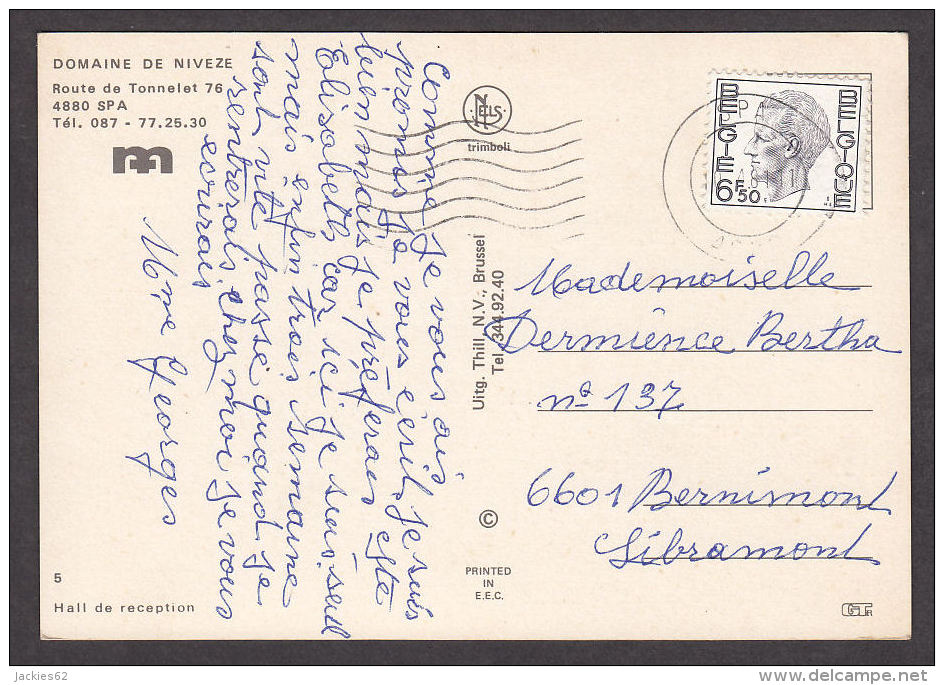 DOMAINE DE NIVEZE
Route de Tonnelet 76
4880 SPA
Tél. 087 - 77.25.30
NELS
trimboli
BELGIE
BELGIQUE
6F50
Comme Je vous ais
promos Je vous ecris Je suis
bien mais Je préferais etre
Elisabeth car ici Je suis seul
mais enfin trois semaine
sont vite passé quand Je
rentrerais cher moi Je vous
ecrirais
Mme Georges
Uitg. Thill, N.V., Brussel
Tel. 344.92.40
Mademoiselle
Dermience Bertha
no 137
6601 Bernimont
Libramont
©
PRINTED
IN
E.E.C.
5
Hall de reception
jackies62
www.delcampe.net